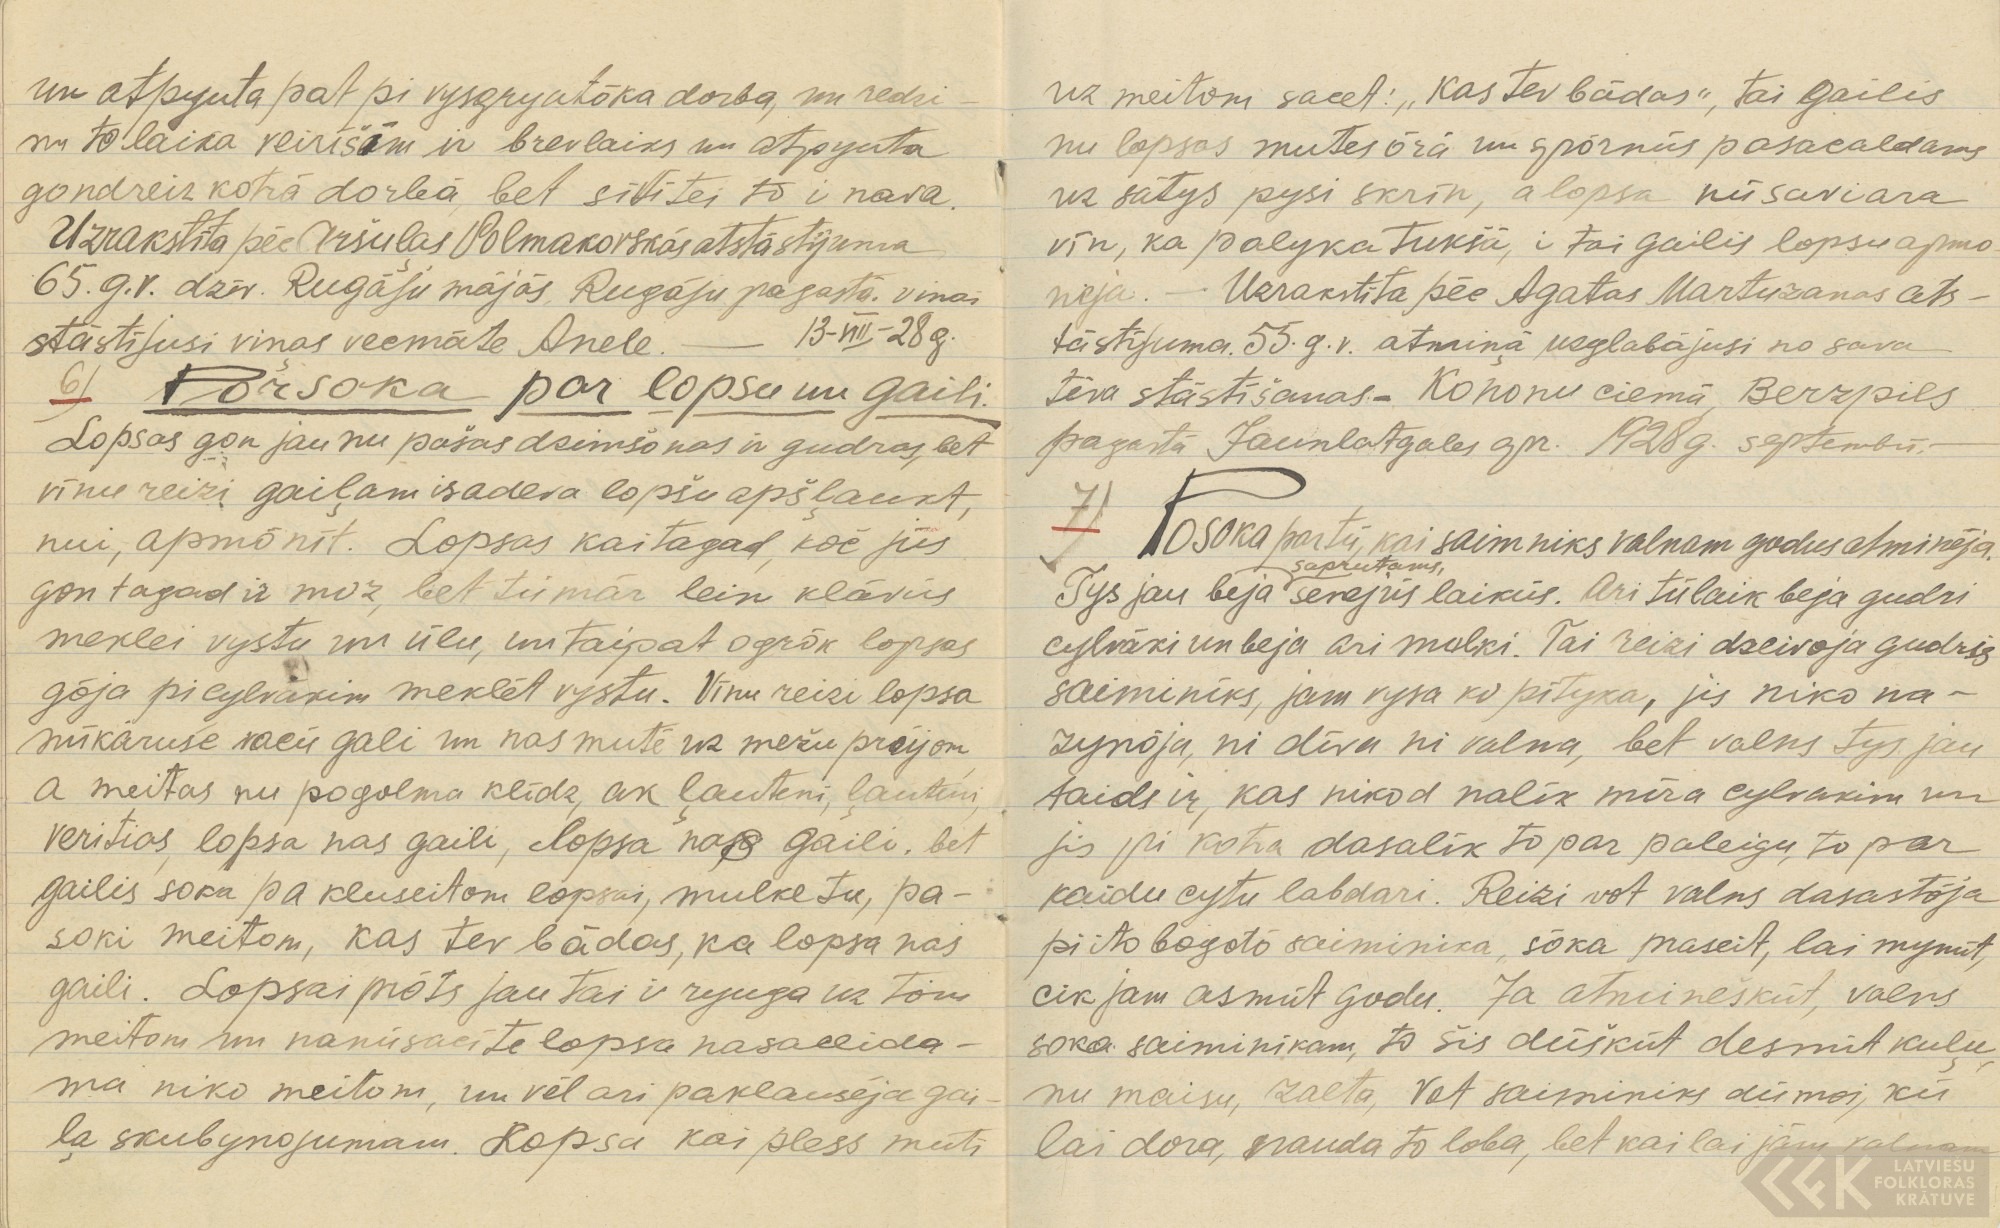 un atpyuta pat pi vysgryutōka dorba, un redzi-
nu tō laika veirīšim ir brevlaiks un atpyuta
gondreiz kotrā dorbā, bet sītitei tō i nava.
Uzrakstīta pēc Vršuļas Polmakovskās atstāstījuma
65. g.v. dzīv. Rugāju mājās, Rugāju pagastā. viņai
stāstījusi viņas vecmāte Anele. — 13-VIII-28g.
6) Pōrsoka par lopsu un gaili.
Lopsas gon jau nu pošas dzimšonas ir gudras, bet
vīnu reizi gaiļam izadeva lopšu apšļaukt,
nui, apmōnīt. Lopsas kai tagad, kōč jūs
gon tagad ir moz, bet tūmār lein klāvūs
meklei vystu un ūlu, un taipat ogrōk lopsas
gōja pi cylvakim meklēt vystu. Vīnu reizi lopsa
nūkāruse vacū gali un nas mutē uz mežu prōjom,
a meitas nu pogolma klīdz, ak ļauteni, ļauteni,
veritias, lopsa nas gaili, lopsa nas gaili. bet
gailis soka pa kluseitom lopsai, mulke tu, pa-
soki meitom, kas tev bādas, ka lopsa nas
gaili. Lopsai prōts jau tai ir ryuga uz tōm
meitom un nanūsacite lopsa nasacida-
ma niko meitom, un vēl ari paklausēja gai-
ļa skubynojumam. Lopsa kai pless muti
uz meitom sacet: „Kas tev bādas“, tai gailis
nu lopsas mutes ōrā un spōrnūs pasacaldams
uz sātys pysi skrīn, a lopsa nūsaviara
vīn, ka palyka tukšā, i tai gailis lopsu apmo
neja. — Uzrakstīta pēc Agatas Martuzanas ats-
tāstījuma. 55. g.v. atmiņā uzglabājusi no sava
tēva stāstīšanas.- Kononu ciemā, Berzpils
pagastā Jaunlatgales apr. 1928g. septembrī.-
7) Posoka par tū, kai saimniks valnam godus atminēja.
saprutams,
Tys jau beja senejūs laikūs. Ari tūlaik beja gudri
cylvāki un beja ari mulki. Tai reizi dzeivoja gudris
saiminīks, jam vysa kō pītyka, jis niko na-
zynōja, ni dīva ni valna, bet valns tys jau
taids ir, kas nikod nalīk mīra cylvakim un
jis pi kotra dasalīk to par paleigu, to par
kaidu cytu labdari. Reizi vot valns dasastōja
pi ito bogotō saiminika, sōka praseit, lai mynūt,
cik jam asmūt godu. Ja atmineškūt, valns
soka saiminikam, to šis dūškūt desmit kuļu,
nu maisu, zalta, Vot saiminiks dūmoj, kū
lai dora, nauda to loba, bet kai lai jām valnam
LATVIEŠU
FOLKLORAS
KRĀTUVE